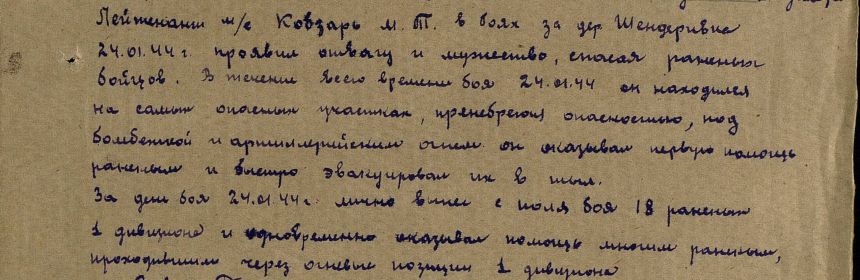 Лейтенант м/с Ковзарь М. Т. в боях за дер Шендеривка
24.01.44 г. проявил отвагу и мужество, спасая раненых
бойцов. В течение всего времени боя 24.01.44 он находился
на самых опасных участках, пренебрегая опасностью, под
бомбежкой и артиллерийским огнем он оказывал первую помощь
раненым и быстро эвакуировал их в тыл.
За день боя 24.01.44 г. лично вынес с поля боя 18 раненых
1 дивизиона и одновременно оказывал помощь многим раненым,
проходившим через огневые позиции 1 дивизиона